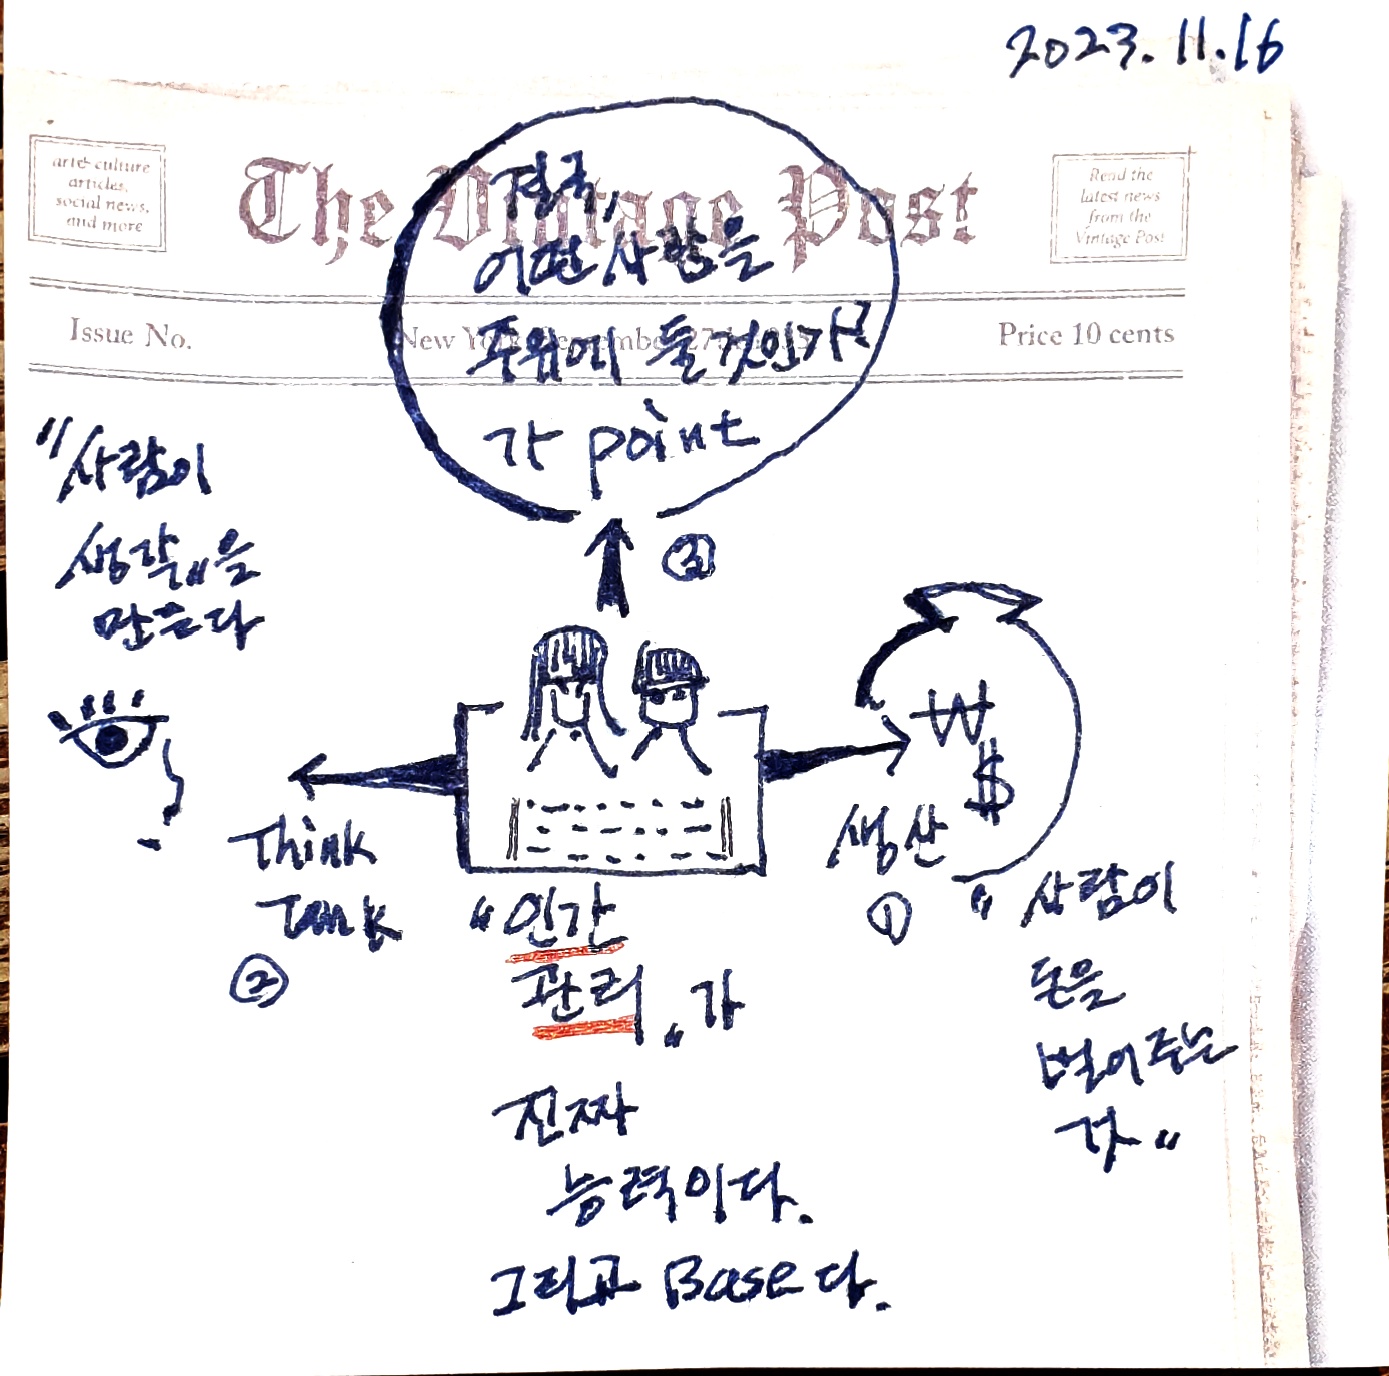 2023.11.16
arts culture
articles,
social news,
and more
The Vintage Post
Read the
latest news
from the
Vintage Post
Issue No.
New York
Price 10 cents
결국,
어떤 사람을
주위에 둘것인가?
가 point
"사람이
생각"을
만든다
③
₩
$
Think
Tank
②
생산
①
"사람이
돈을
벌어주는
것"
"인간
관리"가
진짜
능력이다.
그리고 Base다.